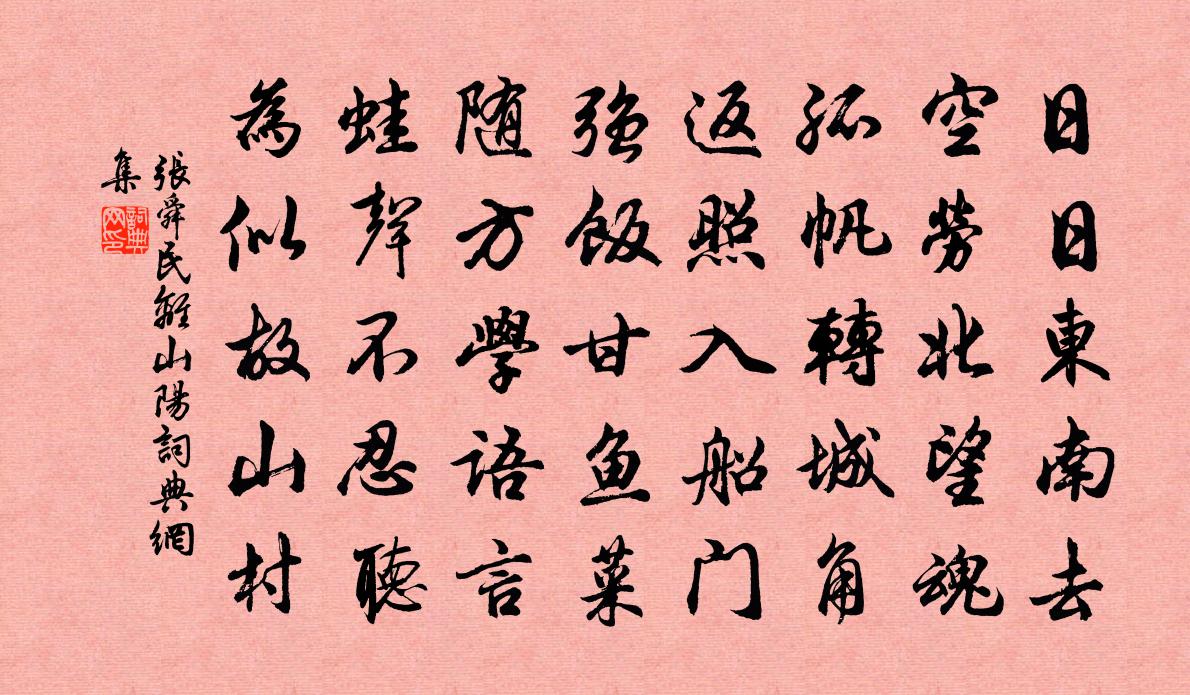 日日東南去
空勞北望魂
孤帆轉城角
返照入船门
強飯甘鱼菜
随方學語言
蛙聲不忍聽
為似故山村
張舜民離山陽詞典網
集
詞典網印